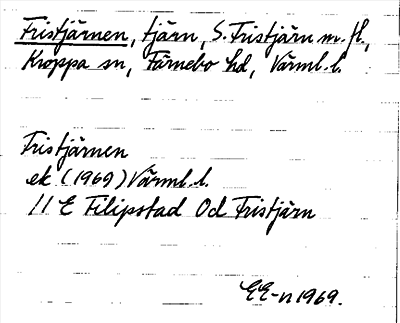 Fristjärnen, tjärn, S. Fristjärn m. fl.,
Kroppa sn, Färnebo hd, Värml. l.
Fristjärnen
ek (1969) Värml. l.
11 E Filipstad Od Fristjärn
EE-n 1969.